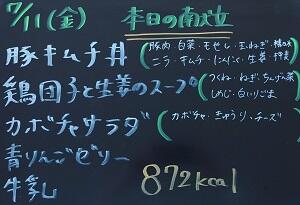 7/11(金) 本日の献立
豚キムチ丼 (豚肉・白菜・もやし・玉ねぎ・
ニラ・キムチ・にんにく・生姜・
鶏団子と生姜のスープ (つくね・ねぎ・ちんげん菜
しめじ・白いりごま
カボチャサラダ (カボチャ・きゅうり・チーズ
青りんごゼリー
牛乳 872kcal